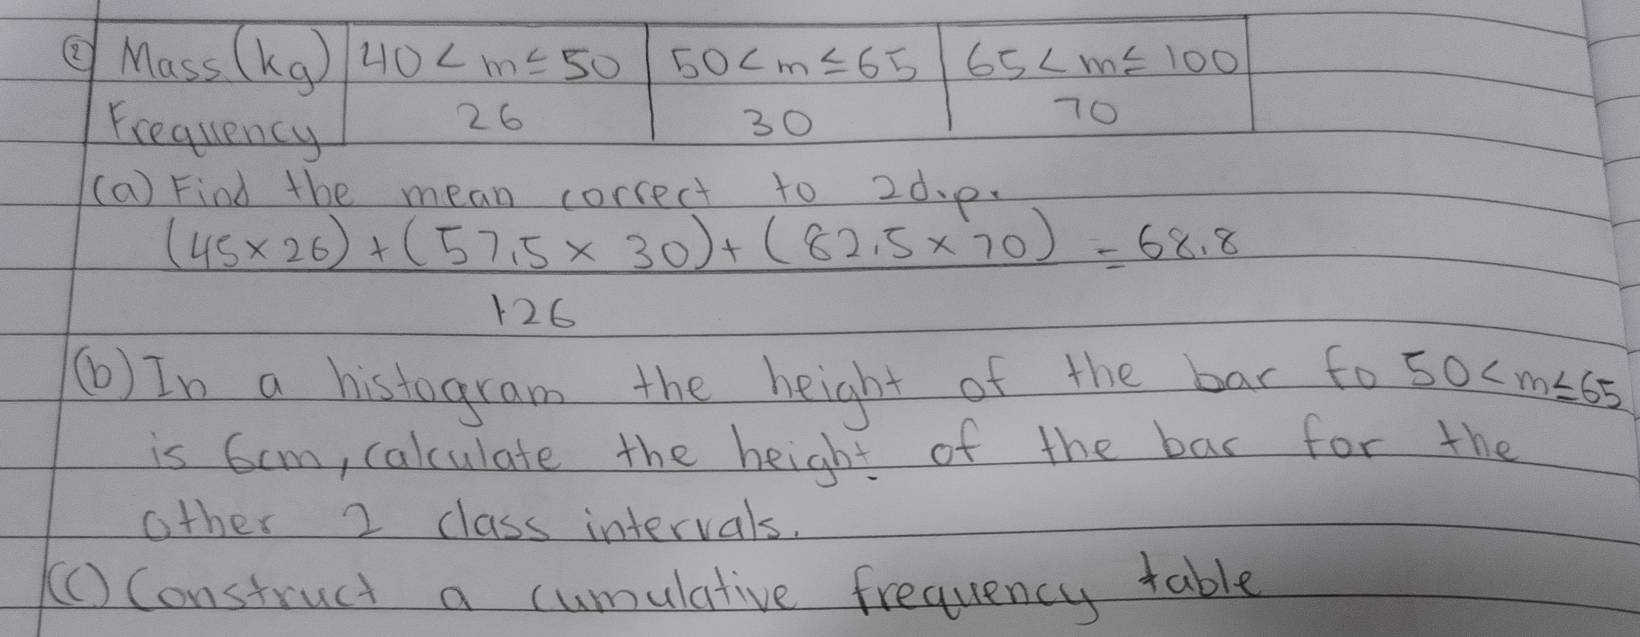 ② Mass (kg) 40 < m ≤ 50 50 < m ≤ 65 65 < m ≤ 100
Frequency 26 30 70
(a) Find the mean correct to 2d.p.
(45 × 26) + (57.5 × 30) + (82.5 × 70) = 68.8
126
(b) In a histogram the height of the bar fo 50 < m ≤ 65
is 6cm, calculate the height of the bar for the
other 2 class intervals.
(c) Construct a cumulative frequency table